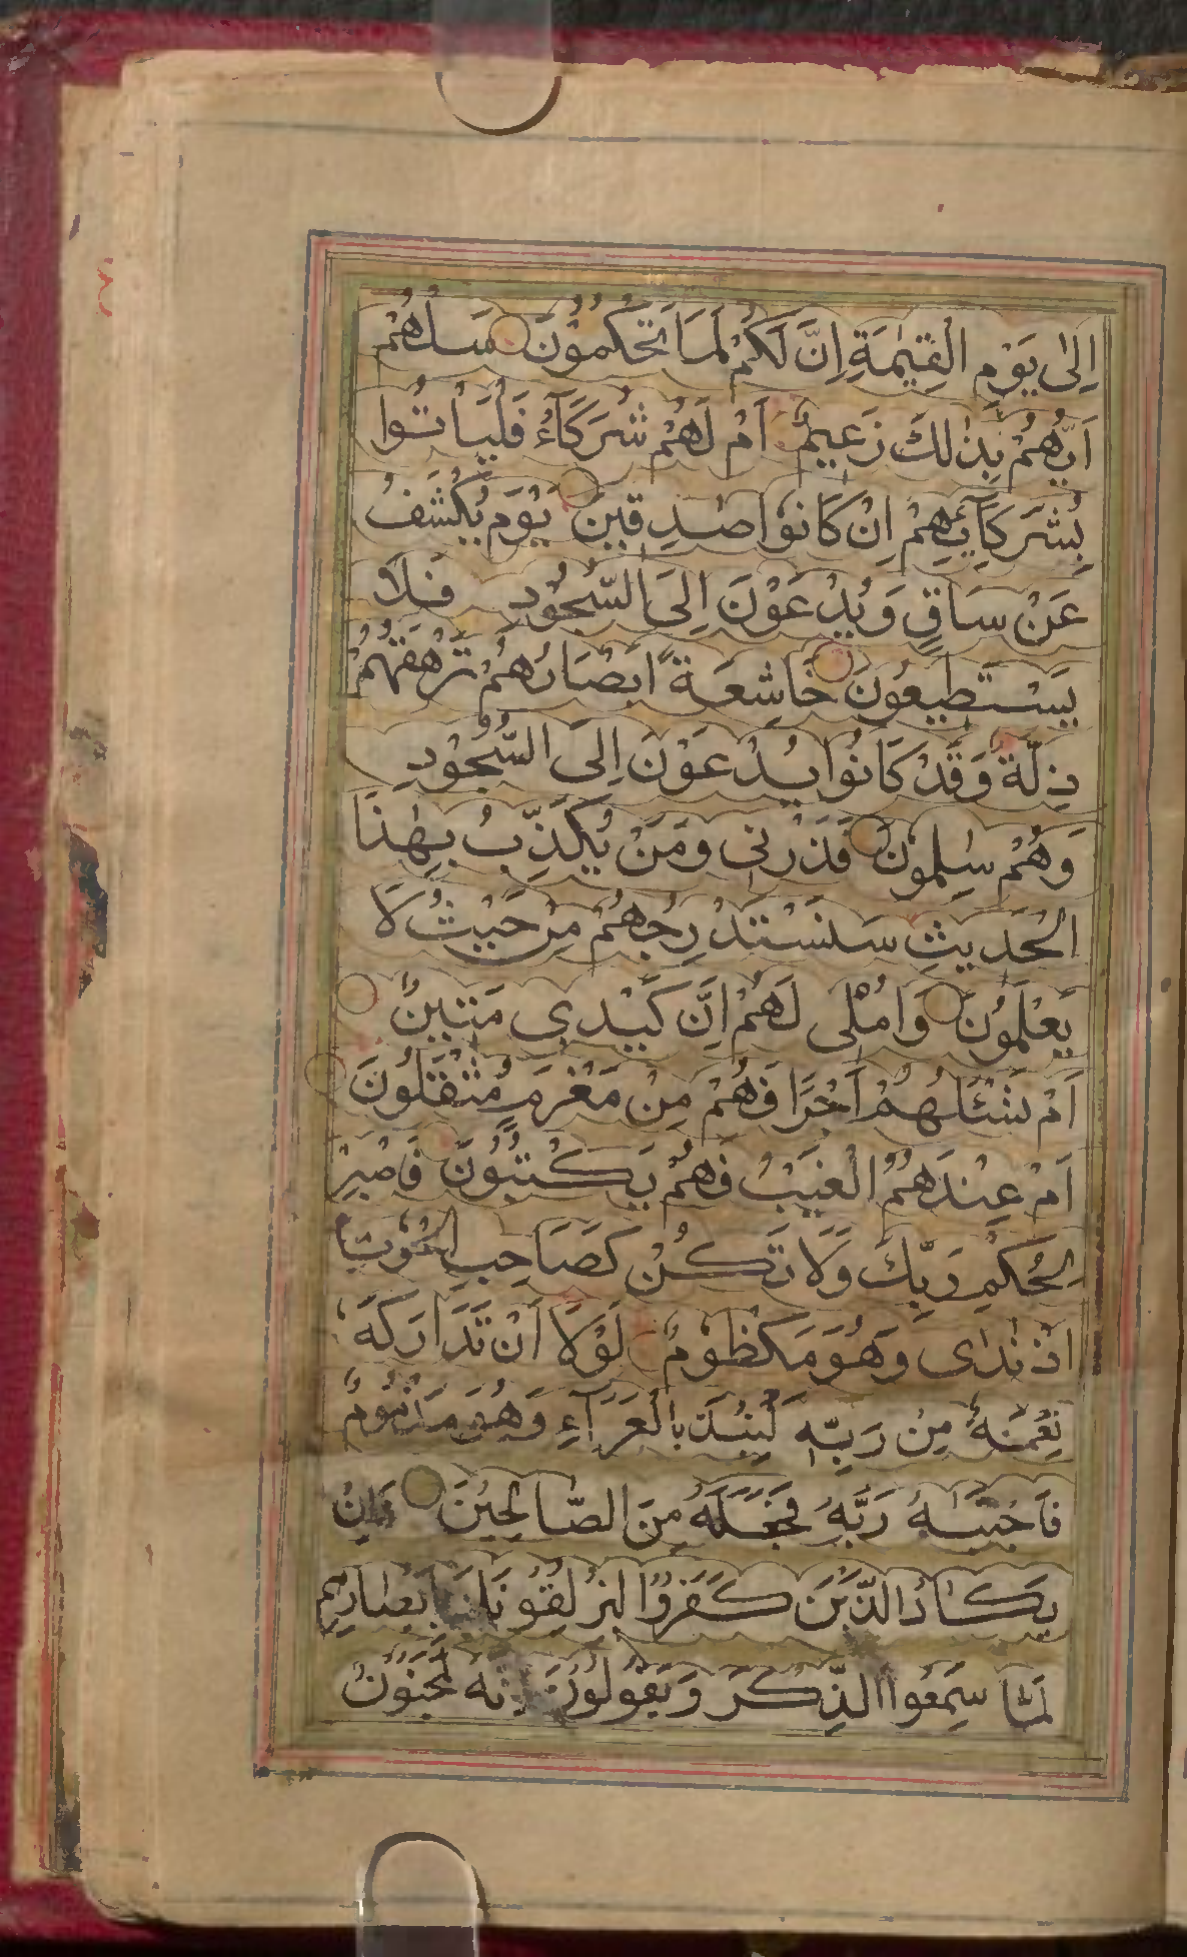 اِلٰى يَوْمِ الْقِيٰمَةِ اِنَّ لَكُمْ لَمَا تَحْكُمُوْنَ سَلْهُمْ
اَيُّهُمْ بِذٰلِكَ زَعِيمٌ اَمْ لَهُمْ شُرَكَآءُ فَلْيَأْتُوا
بِشُرَكَآئِهِمْ اِنْ كَانُوا صٰدِقِينَ يَوْمَ يُكْشَفُ
عَنْ سَاقٍ وَيُدْعَوْنَ اِلَى السُّجُوْدِ فَلَا
يَسْتَطِيعُونَ خَاشِعَةً اَبْصَارُهُمْ تَرْهَقُهُمْ
ذِلَّةٌ وَقَدْ كَانُوا يُدْعَوْنَ اِلَى السُّجُوْدِ
وَهُمْ سٰلِمُونَ فَذَرْنِى وَمَنْ يُكَذِّبُ بِهٰذَا
الْحَدِيثِ سَنَسْتَدْرِجُهُمْ مِنْ حَيْثُ لَا
يَعْلَمُونَ وَاُمْلِى لَهُمْ اِنَّ كَيْدِى مَتِينٌ
اَمْ تَسْئَلُهُمْ اَجْرًا فَهُمْ مِنْ مَغْرَمٍ مُثْقَلُونَ
اَمْ عِنْدَهُمُ الْغَيْبُ فَهُمْ يَكْتُبُونَ فَاصْبِرْ
لِحُكْمِ رَبِّكَ وَلَا تَكُنْ كَصَاحِبِ الْحُوْتِ
اِذْ نَادٰى وَهُوَ مَكْظُومٌ لَوْلَا اَنْ تَدَارَكَهُ
نِعْمَةٌ مِنْ رَبِّهٖ لَنُبِذَ بِالْعَرَآءِ وَهُوَ مَذْمُومٌ
فَاجْتَبٰىهُ رَبُّهُ فَجَعَلَهُ مِنَ الصَّالِحِيْنَ وَاِنْ
يَكَادُ الَّذِيْنَ كَفَرُوْا لَيُزْلِقُوْنَكَ بِاَبْصَارِهِمْ
لَمَّا سَمِعُوا الذِّكْرَ وَيَقُولُوْنَ اِنَّهُ لَمَجْنُوْنٌ